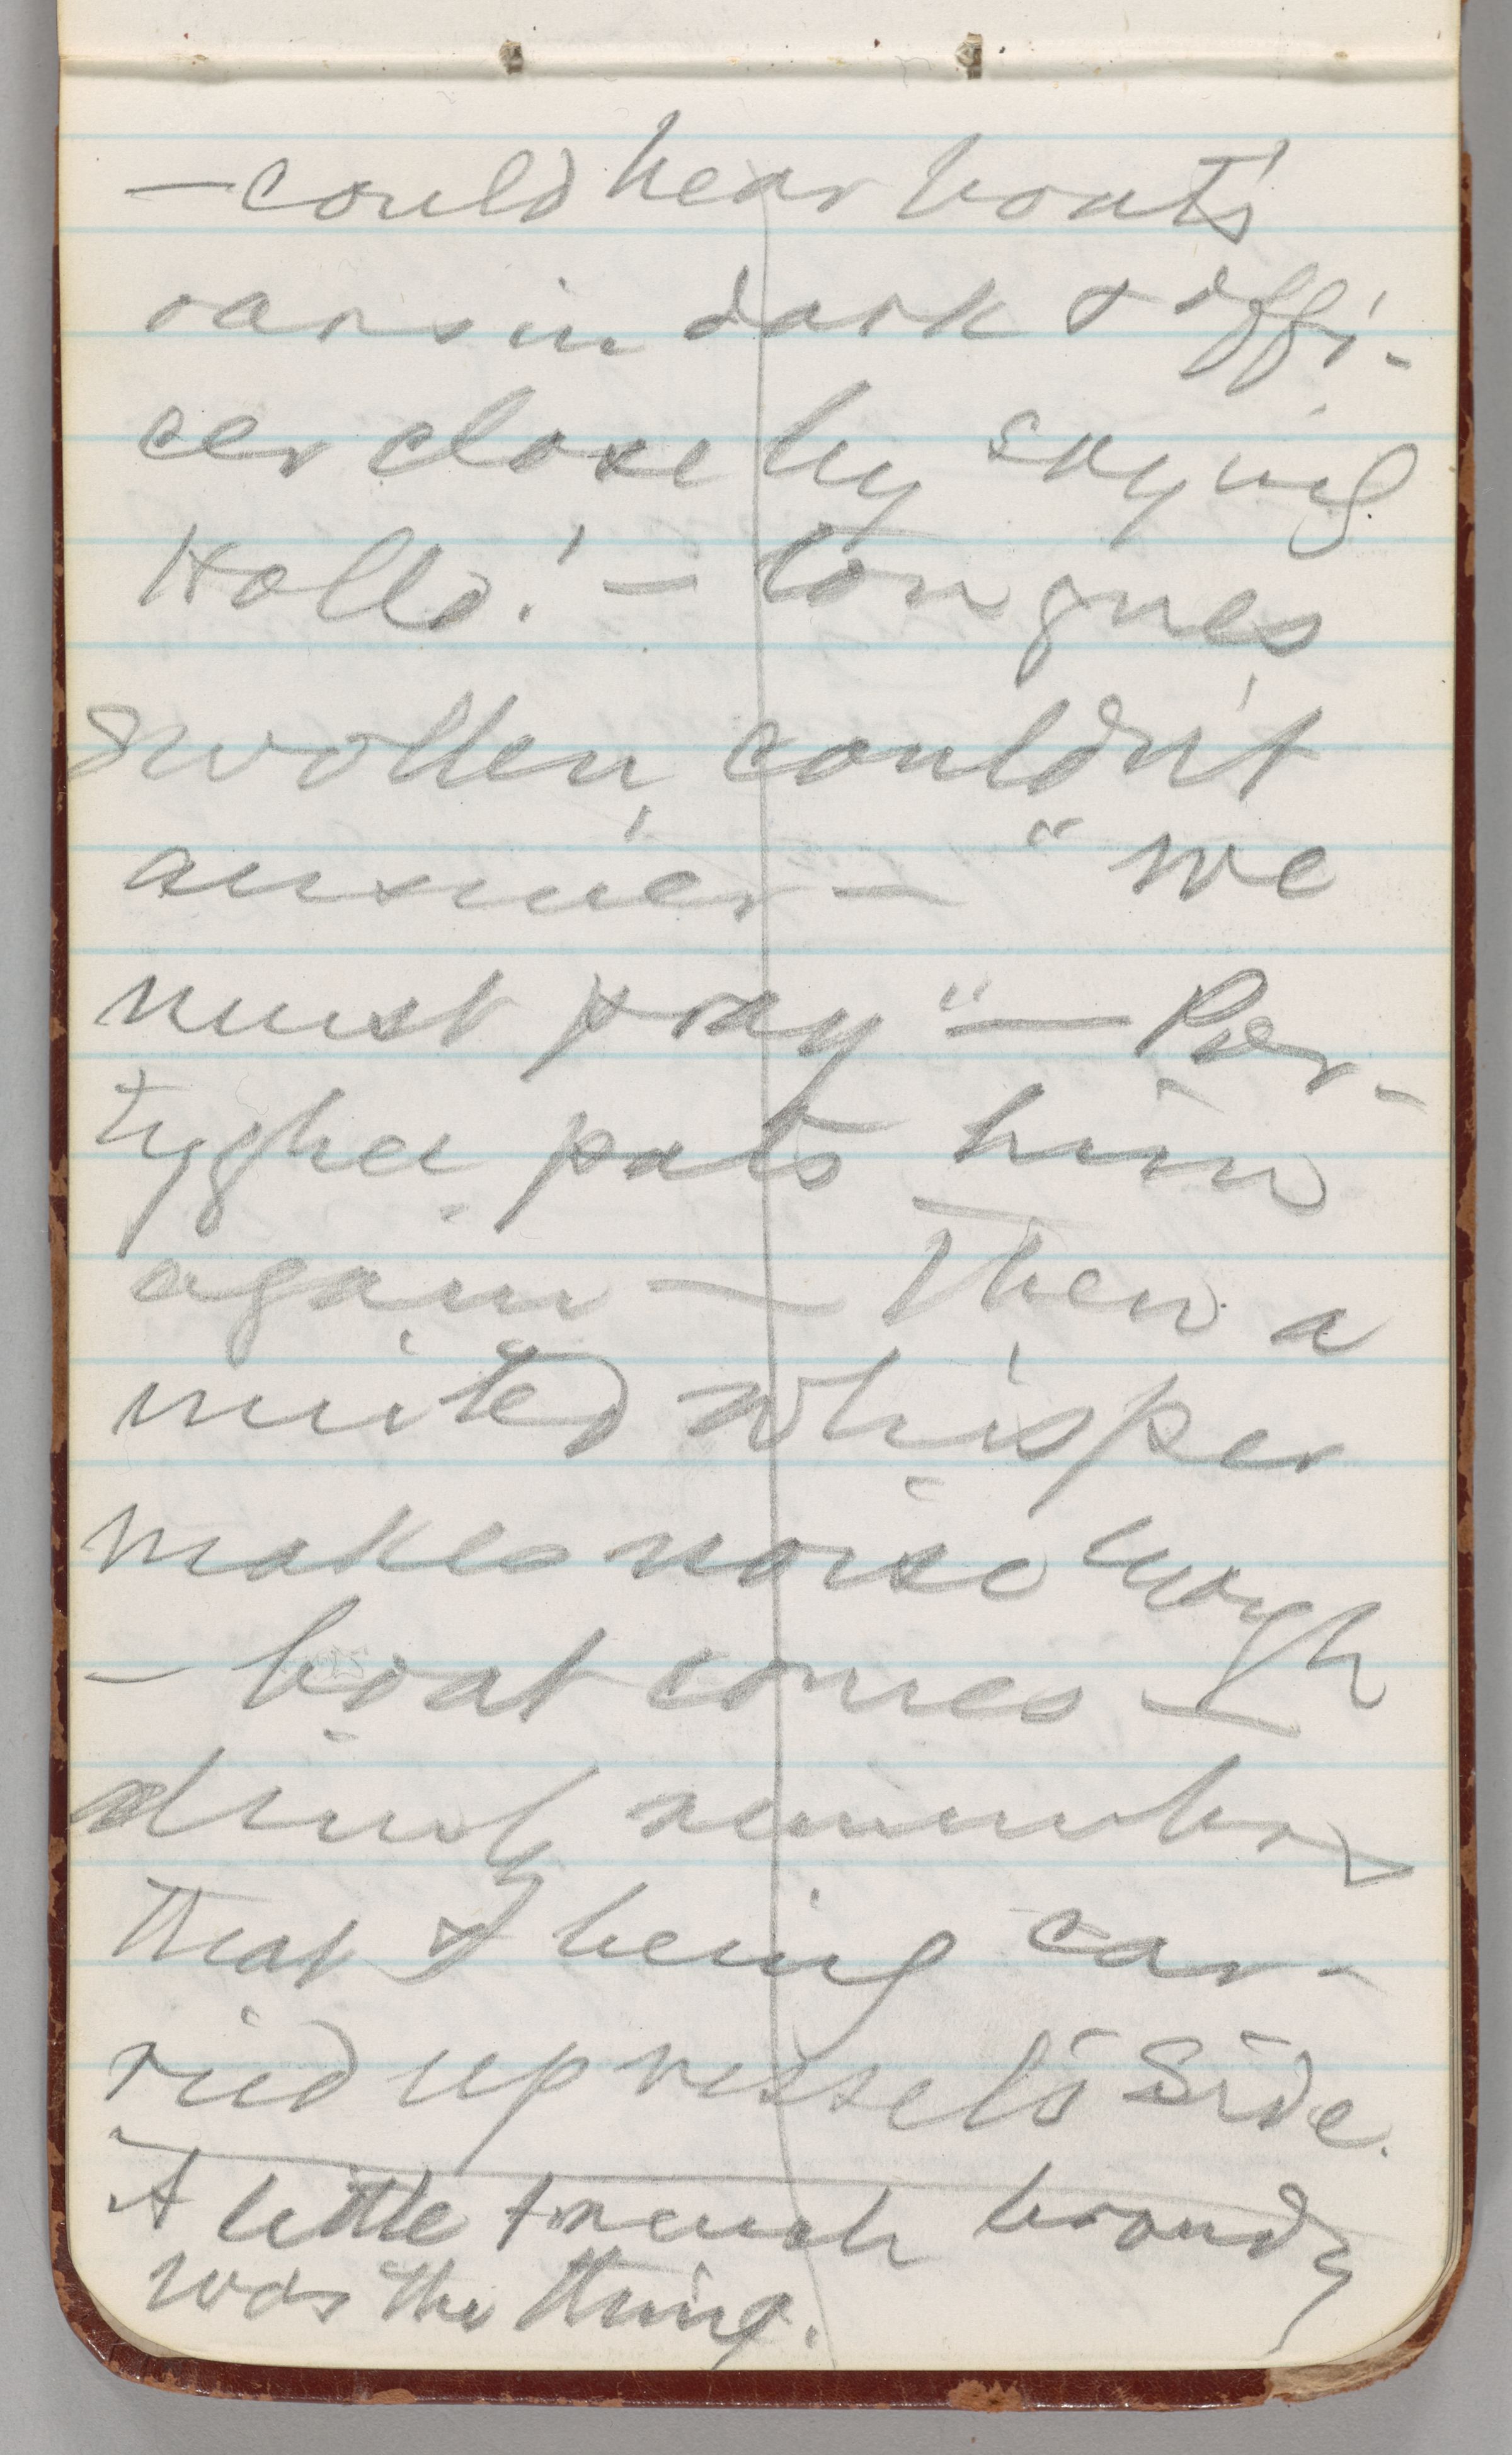 — could hear boat's
oars in dark & offi-
cer close by saying
Hollo! — tongues
swollen, couldn't
answer — "we
must pray" — Por-
tyghee pats him
again — Then a
united whisper
makes noise enough
— boat comes —
dimly remembers
that & being car-
ried up vessel's side.
A little too much brandy
was the thing.